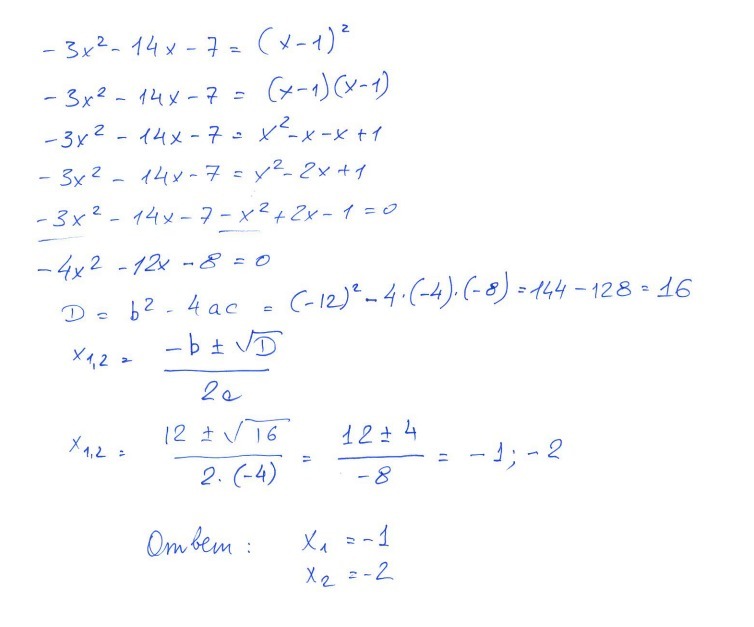 -3x² - 14x - 7 = (x-1)²
-3x² - 14x - 7 = (x-1)(x-1)
-3x² - 14x - 7 = x² - x - x + 1
-3x² - 14x - 7 = x² - 2x + 1
-3x² - 14x - 7 - x² + 2x - 1 = 0
-4x² - 12x - 8 = 0
D = b² - 4ac = (-12)² - 4·(-4)·(-8) = 144 - 128 = 16
x₁,₂ = (-b ± √D) / 2a
x₁,₂ = (12 ± √16) / (2·(-4)) = (12 ± 4) / (-8) = -1; -2
Ответ: x₁ = -1
x₂ = -2